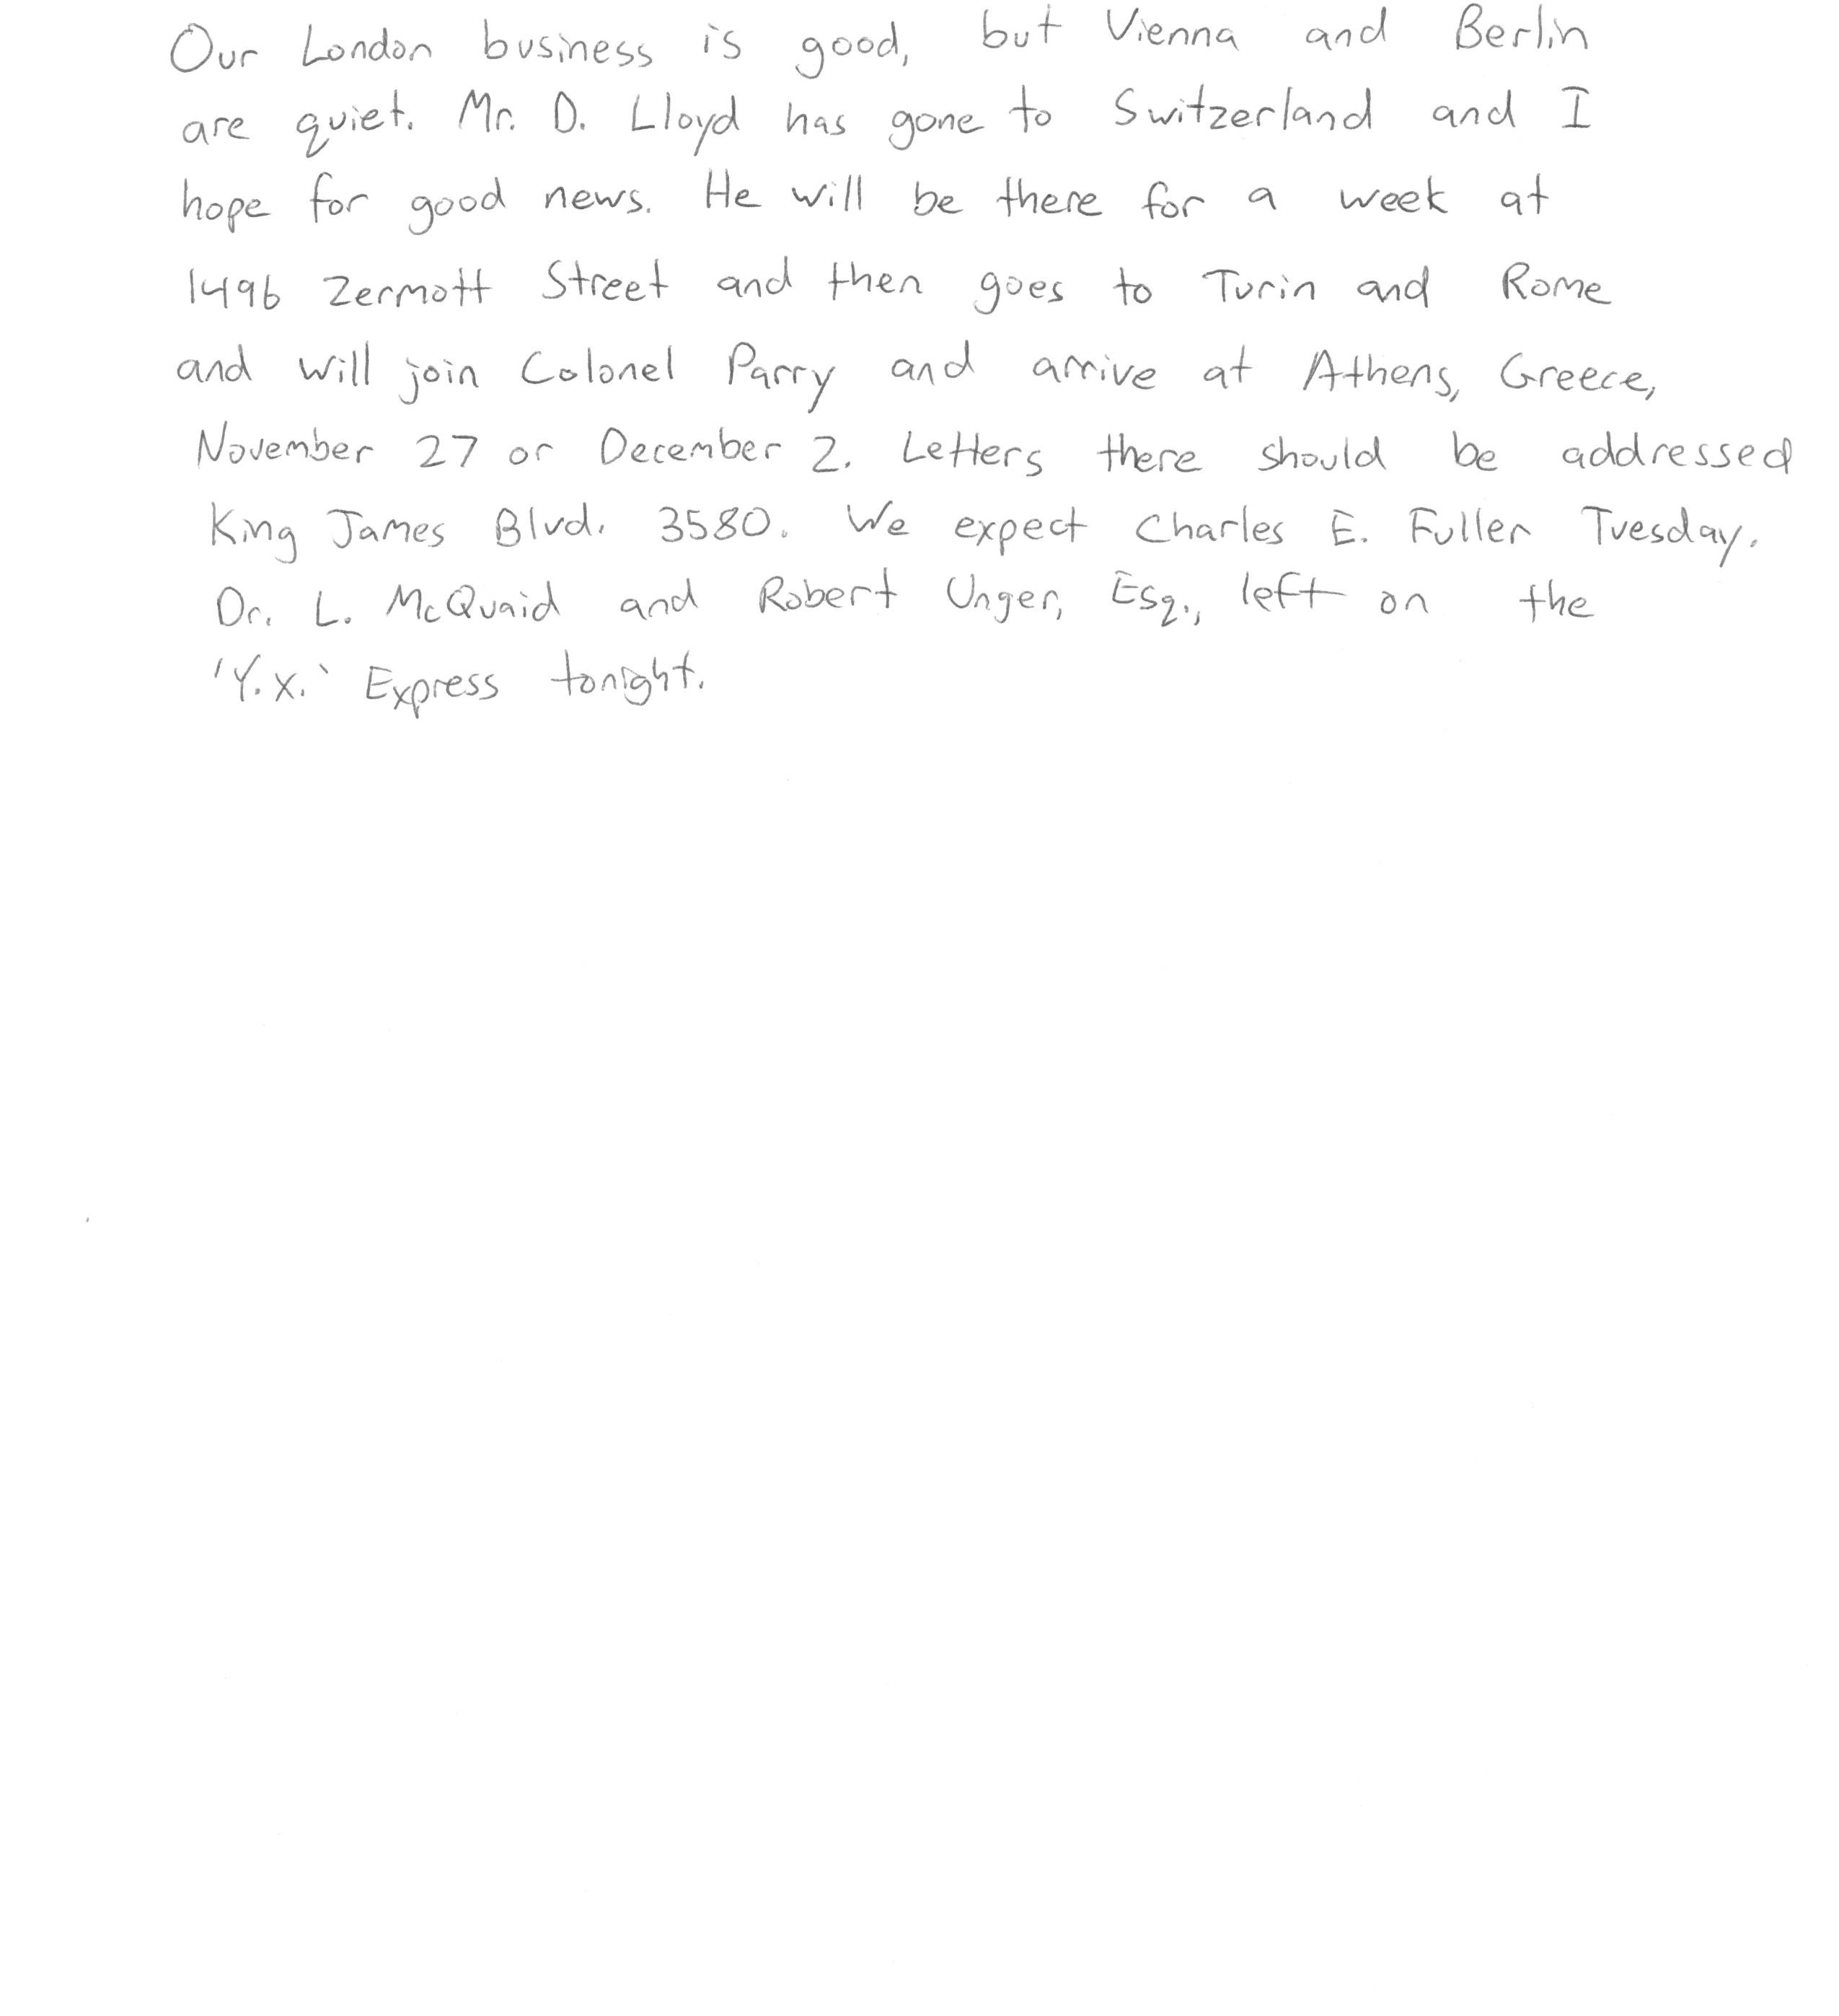 Our London business is good, but Vienna and Berlin
are quiet. Mr. D. Lloyd has gone to Switzerland and I
hope for good news. He will be there for a week at
1496 Zermott Street and then goes to Turin and Rome
and will join Colonel Parry and arrive at Athens, Greece,
November 27 or December 2. Letters there should be addressed
King James Blvd. 3580. We expect Charles E. Fuller Tuesday.
Dr. L. McQuaid and Robert Unger, Esq., left on the
'Y.X.' Express tonight.